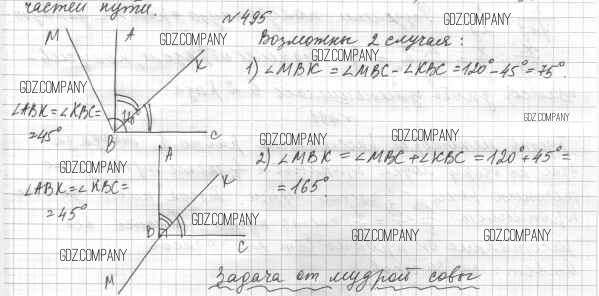 частей пути.
№495
Возможны 2 случая:
M A K
1) ∠MBK = ∠MBC - ∠KBC = 120° - 45° = 75°.
∠ABK = ∠KBC =
= 45°
B C
2) ∠MBK = ∠MBC + ∠KBC = 120° + 45° =
= 165°.
A K
∠ABK = ∠KBC =
= 45°
B C
M
Задача от мудрой совы
GDZ.COMPANY
GDZ.COMPANY
GDZ.COMPANY
GDZ.COMPANY
GDZ.COMPANY
GDZ.COMPANY
GDZ.COMPANY
GDZ.COMPANY
GDZ.COMPANY
GDZ.COMPANY
GDZ.COMPANY
GDZ.COMPANY